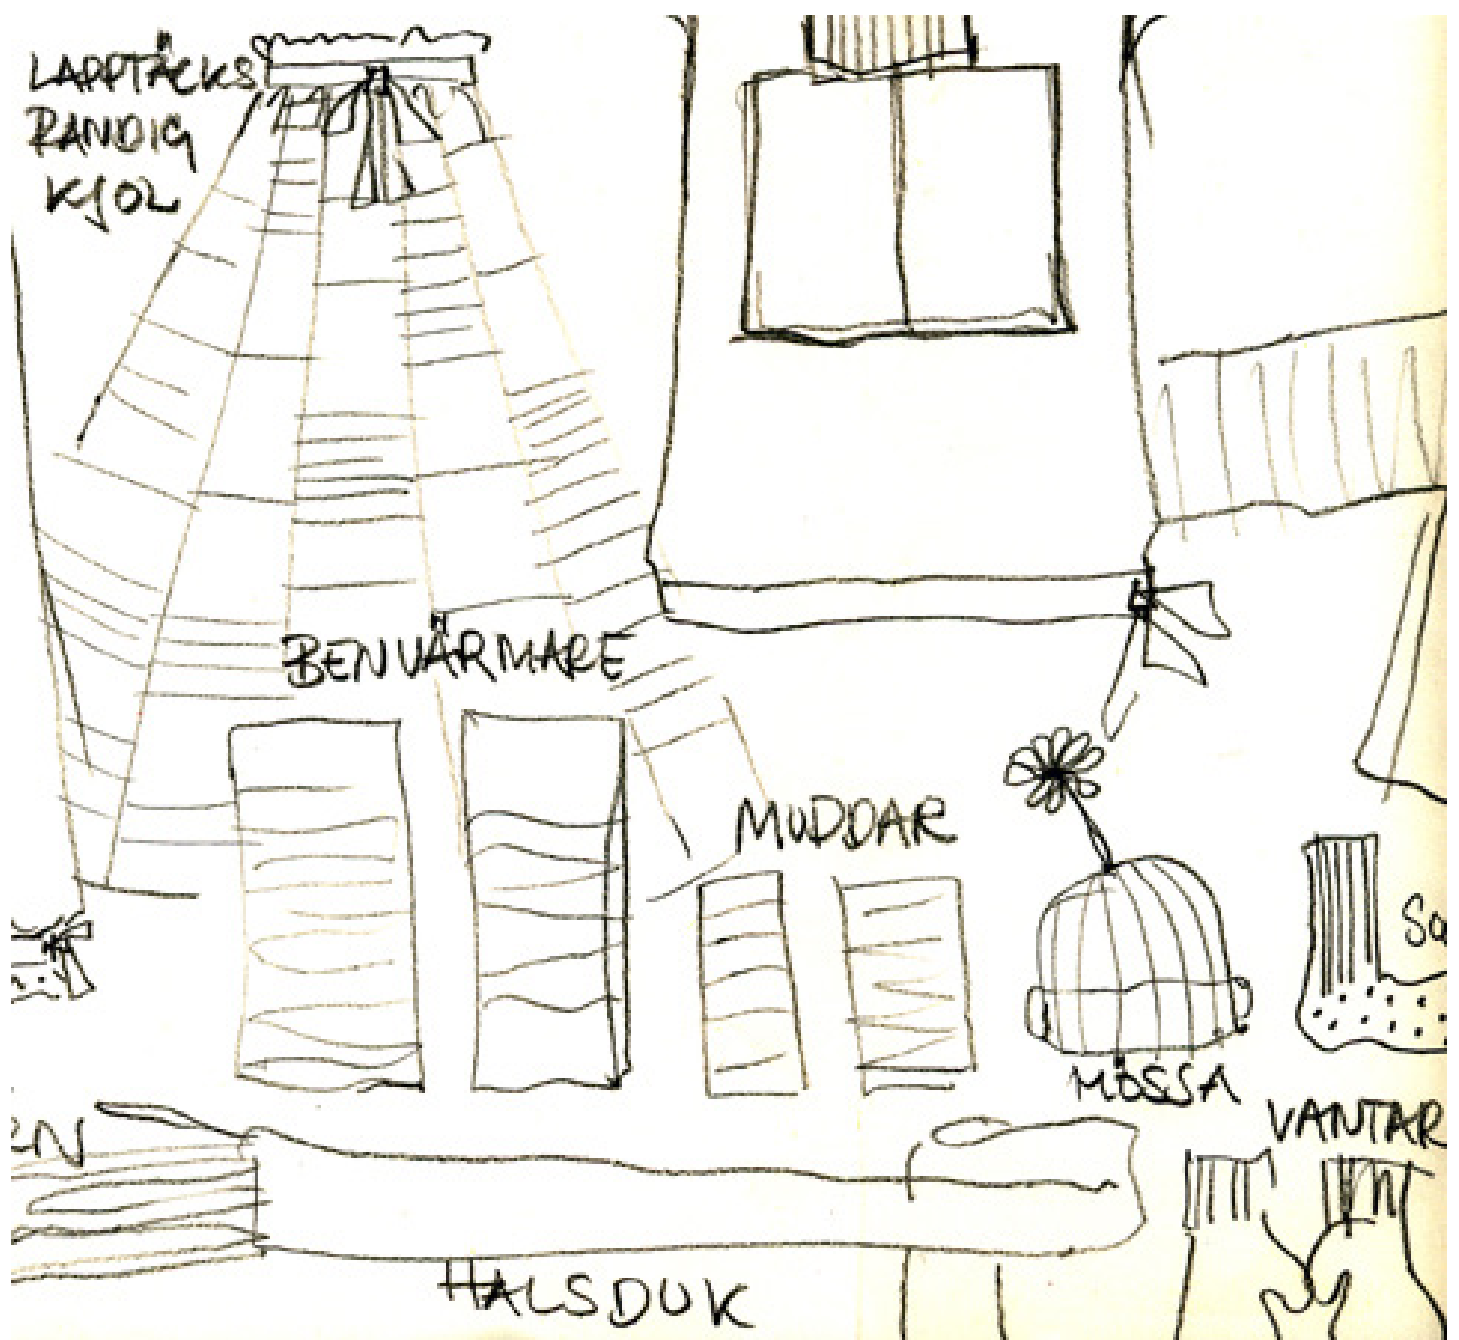 LAPPTÄCKS
RANDIG
KJOL
BENVÄRMARE
MUDDAR
MÖSSA
VANTAR
HALSDUK